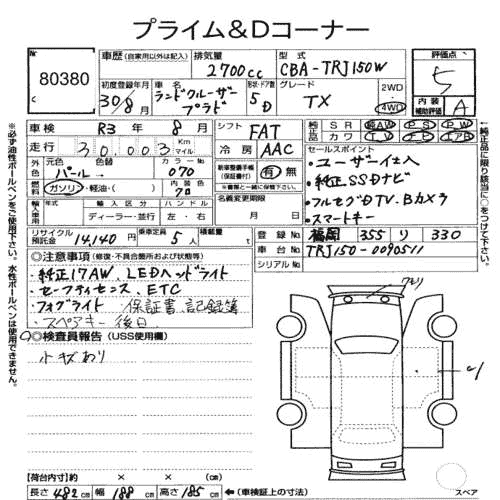 プライム&Dコーナー
No.
80380
C
車歴 (自家用以外は記入) 排気量 2700cc 型式 CBA-TRJ150W
初度登録年月 30/8月 車名 ランドクルーザープラド 型状・ドア数 5D グレード TX 2WD・4WD
評価点 5
内装補助評価 A
車検 R3年 8月 シフト FAT
走行 30,003 Km マイル 冷房 AAC
純正品 SR 純AW PS PW
カワ TV ナビ エアB
外色 元色 パール 色替 カラーNo 070
燃料 ガソリン・軽油・( ) 内装色 クロ
新車整備手帳(保証書付) 有・無
※書類と一緒に保管下さい。
輸入車用 年式 年 輸入区分 ディーラー・並行 ハンドル 左・右
名義変更期限 月 日
リサイクル預託金 14,140円 乗車定員 5人 積載量 t
セールスポイント
・ユーザー仕入
・純正SDナビ
・フルセグDTV、Bカメラ
・スマートキー
登録No. 福岡 355 り 330
車台No. TRJ150-0090511
シリアルNo.
◎注意事項 (修復・不具合箇所および状態等)
・純正17AW、LEDヘッドライト
・セーフティセンス、ETC
・フォグライト 保証書、記録簿
・スペアキー後日
◎検査員報告 (USS使用欄)
小キズあり
スペア
【荷台内寸】長さ × 幅 × 高さ cm
長さ 482cm 幅 188cm 高さ 185cm ←(車検証上の寸法)
※必ず油性ボールペンをご使用下さい。水性ボールペンは使用できません。